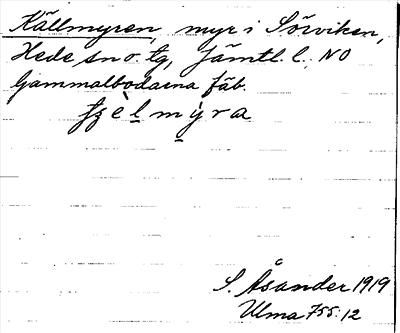 Källmyren, myr i Sörviken,
Hede sn o. tg, Jämtl. l. NO
Gammalbodarna fäb.
è l m y̆ r a
S. Åsander 1919
Ulma 755:12